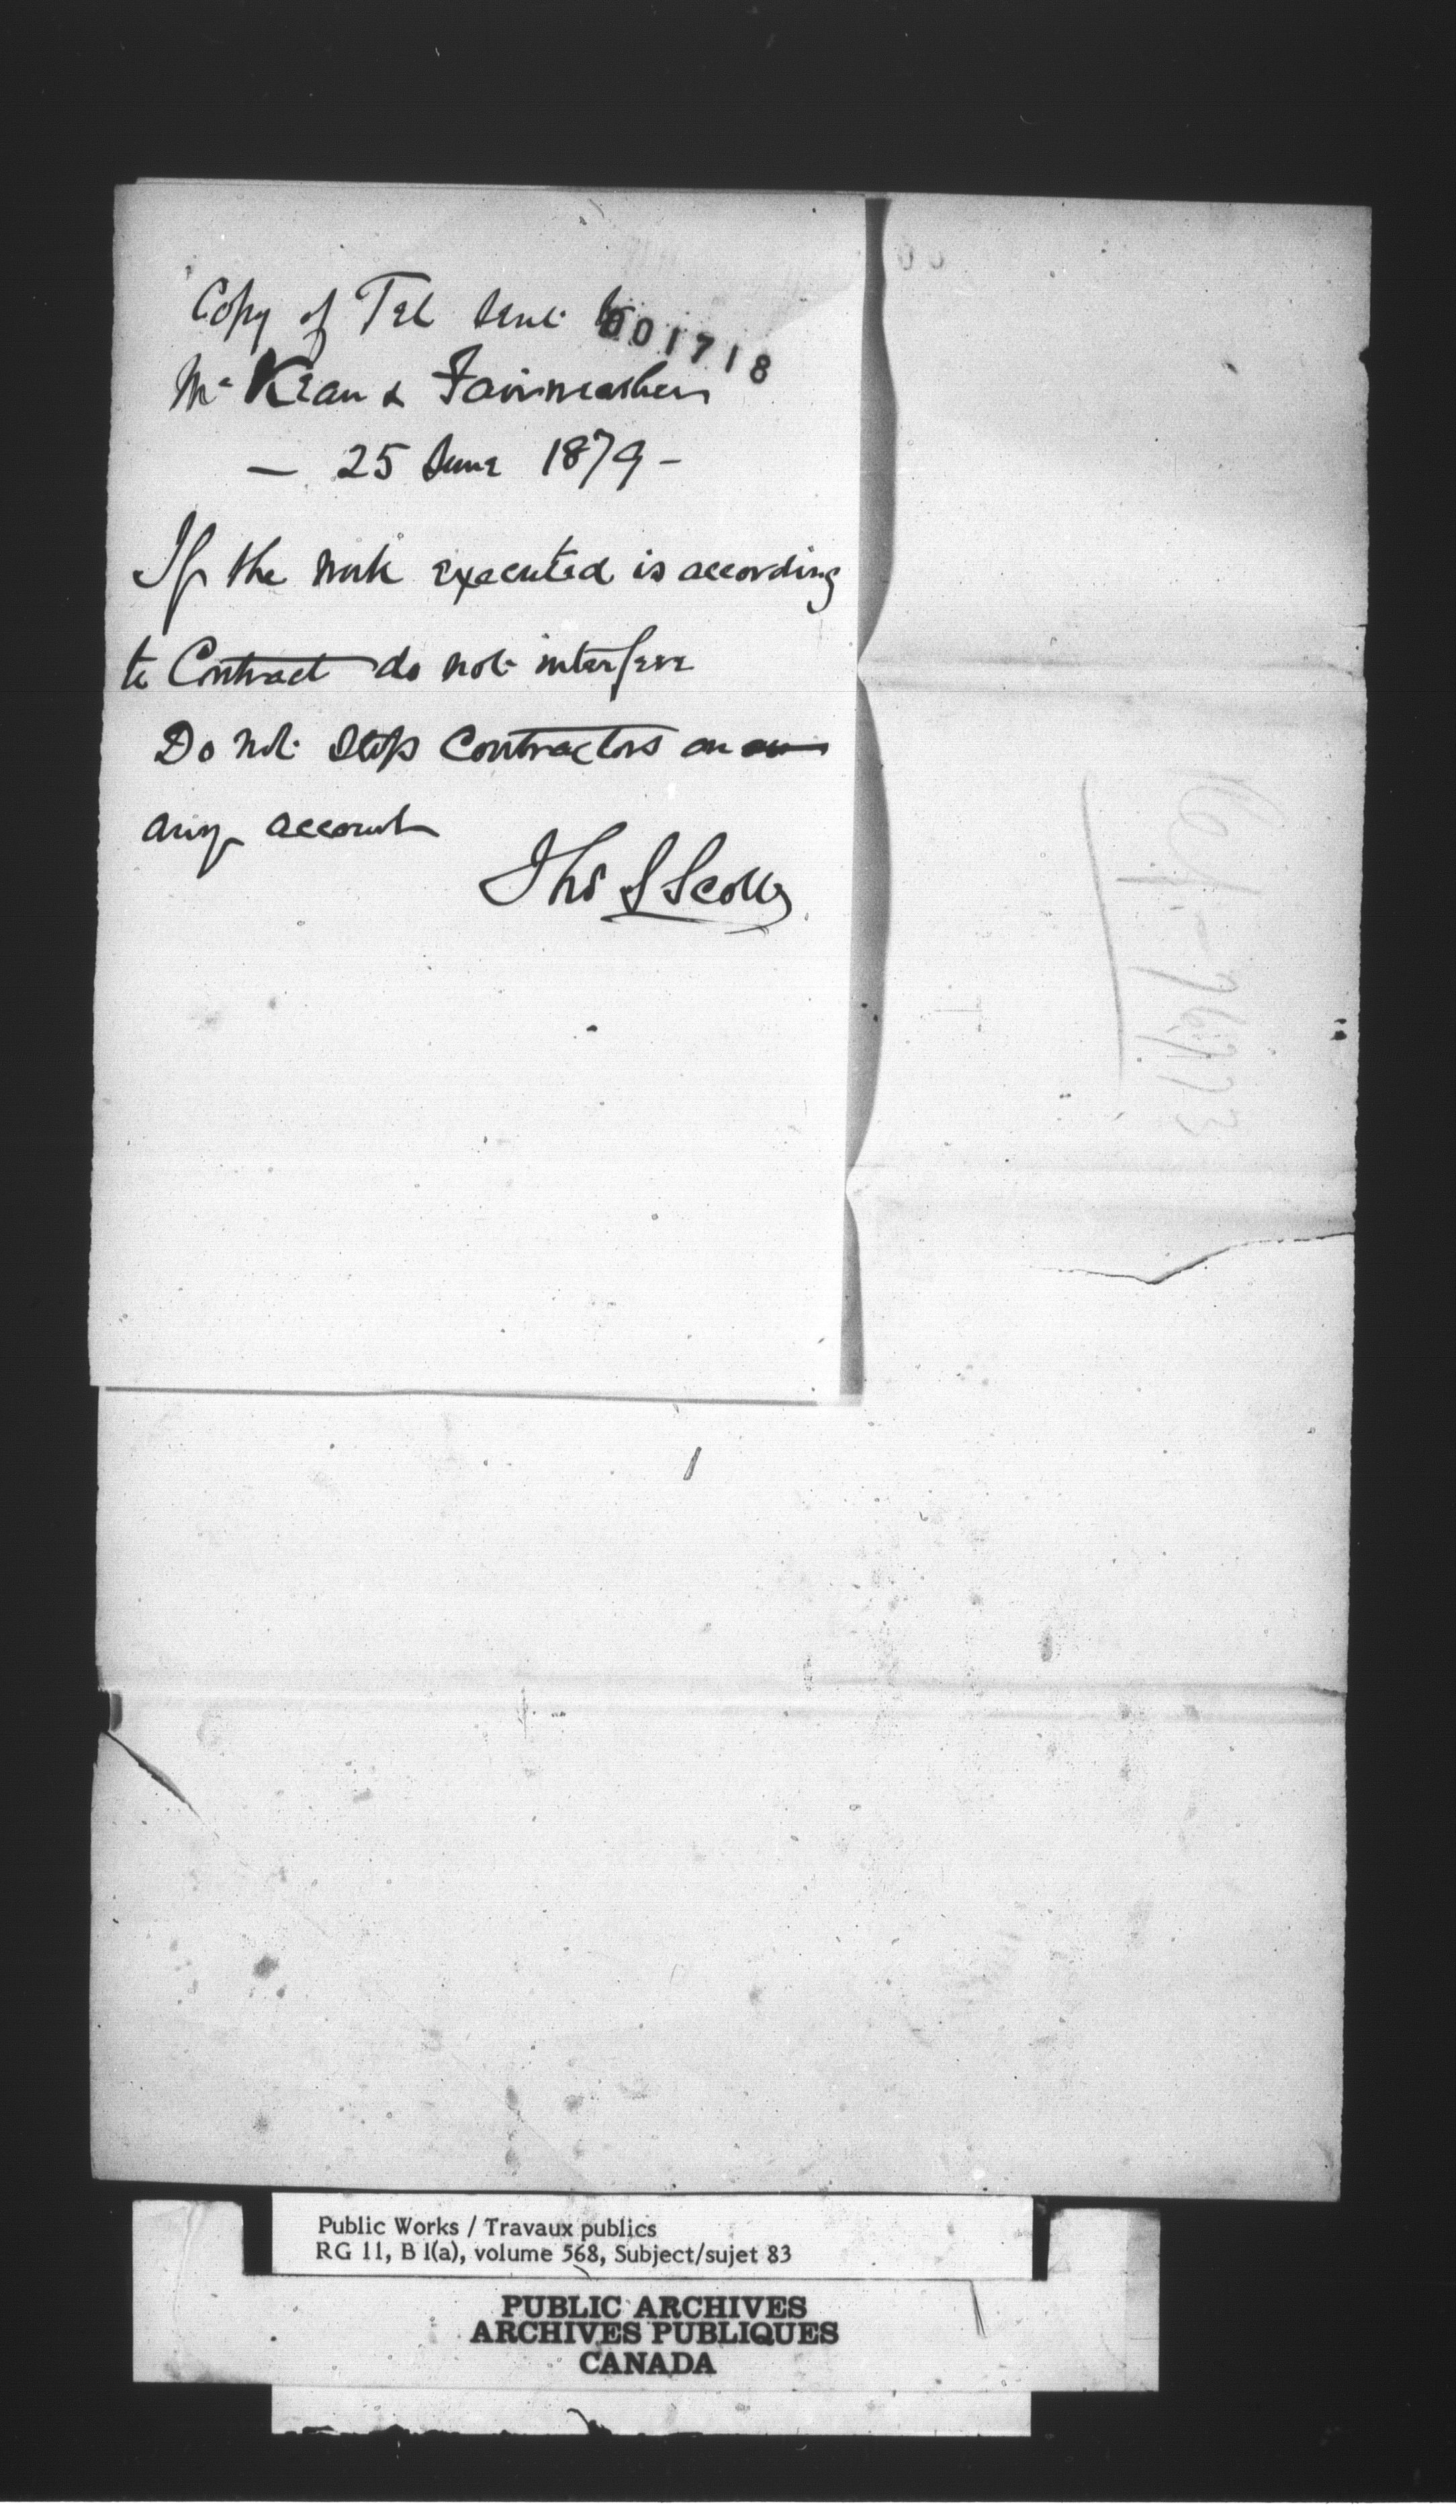 Copy of Tel sent to
001718
McKean & Fairweather
— 25 June 1879 —
If the work executed is according
to Contract do not interfere
Do not stop Contractors on
any account
Thos S Scott
Public Works / Travaux publics
RG 11, B 1(a), volume 568, Subject/sujet 83
PUBLIC ARCHIVES
ARCHIVES PUBLIQUES
CANADA